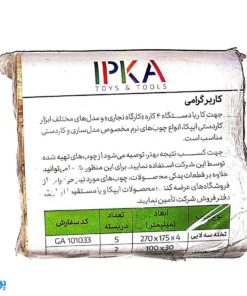 IPKA
TOYS & TOOLS
کاربر گرامی
جهت کار با دستگاه ۴ کاره «کارگاه نجاری» و مدل‌های مختلف ابزار
کاردستی ایپکا، انواع چوب‌های نرم مخصوص مدل‌سازی و کاردستی
مناسب است.
جهت کسب نتیجه بهتر، توصیه می‌شود از چوب‌های تهیه شده
توسط این شرکت استفاده نمایید. برای این منظور می‌توانید
علاوه بر قطعات یدکی محصولات، چوب‌های مورد نیاز خود را از
فروشگاه‌های عرضه کننده محصولات ایپکا و یا مستقیما از
دفتر فروش شرکت تأمین نمایید.
ابعاد (میلیمتر) تعداد دربسته کد سفارش
تخته سه لایی 270 x 175 x 4 5 GA 101033
100 x 30 2